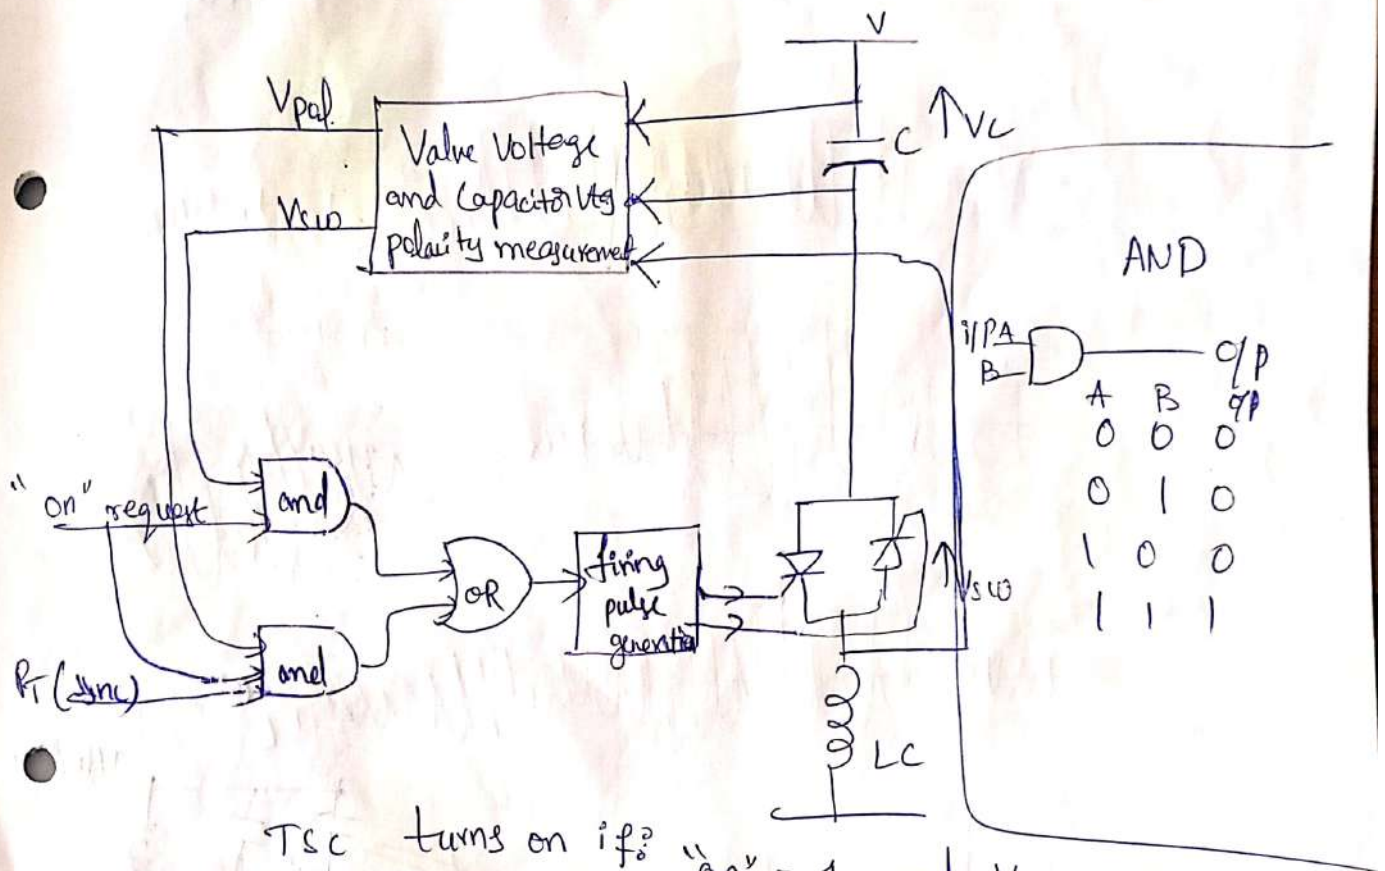 V
Vpol.
Valve Voltage
and Capacitor Vtg
polarity measurement
C
VC
Vsw
AND
i/P A
B
O/P
A B O/P
0 0 0
0 1 0
1 0 0
1 1 1
"on" request
and
OR
firing
pulse
generation
Vsw
PT (sync)
and
LC
TSC turns on if:
"on"